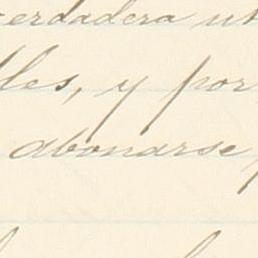 verdadera ut
lles, y por
abonarse